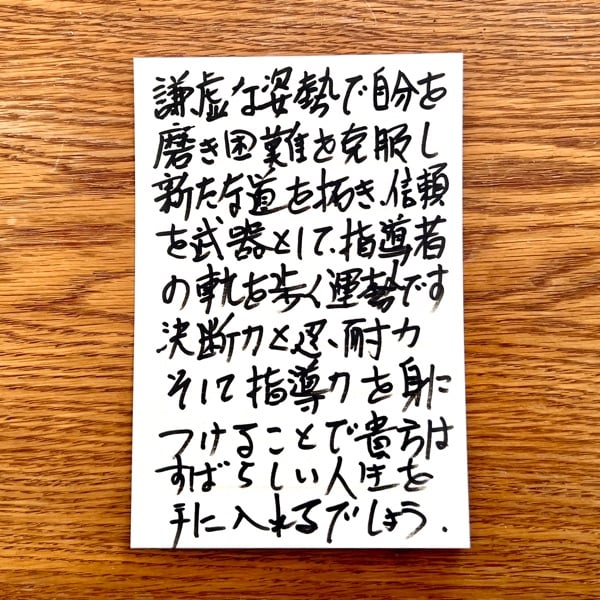 謙虚な姿勢で自分を
磨き困難を克服し
新たな道を拓き、信頼
を武器として、指導者
の軌を歩く運勢です
決断力と忍、耐力
そして指導力を身に
つけることで貴方は
すばらしい人生を
手に入れるでしょう.